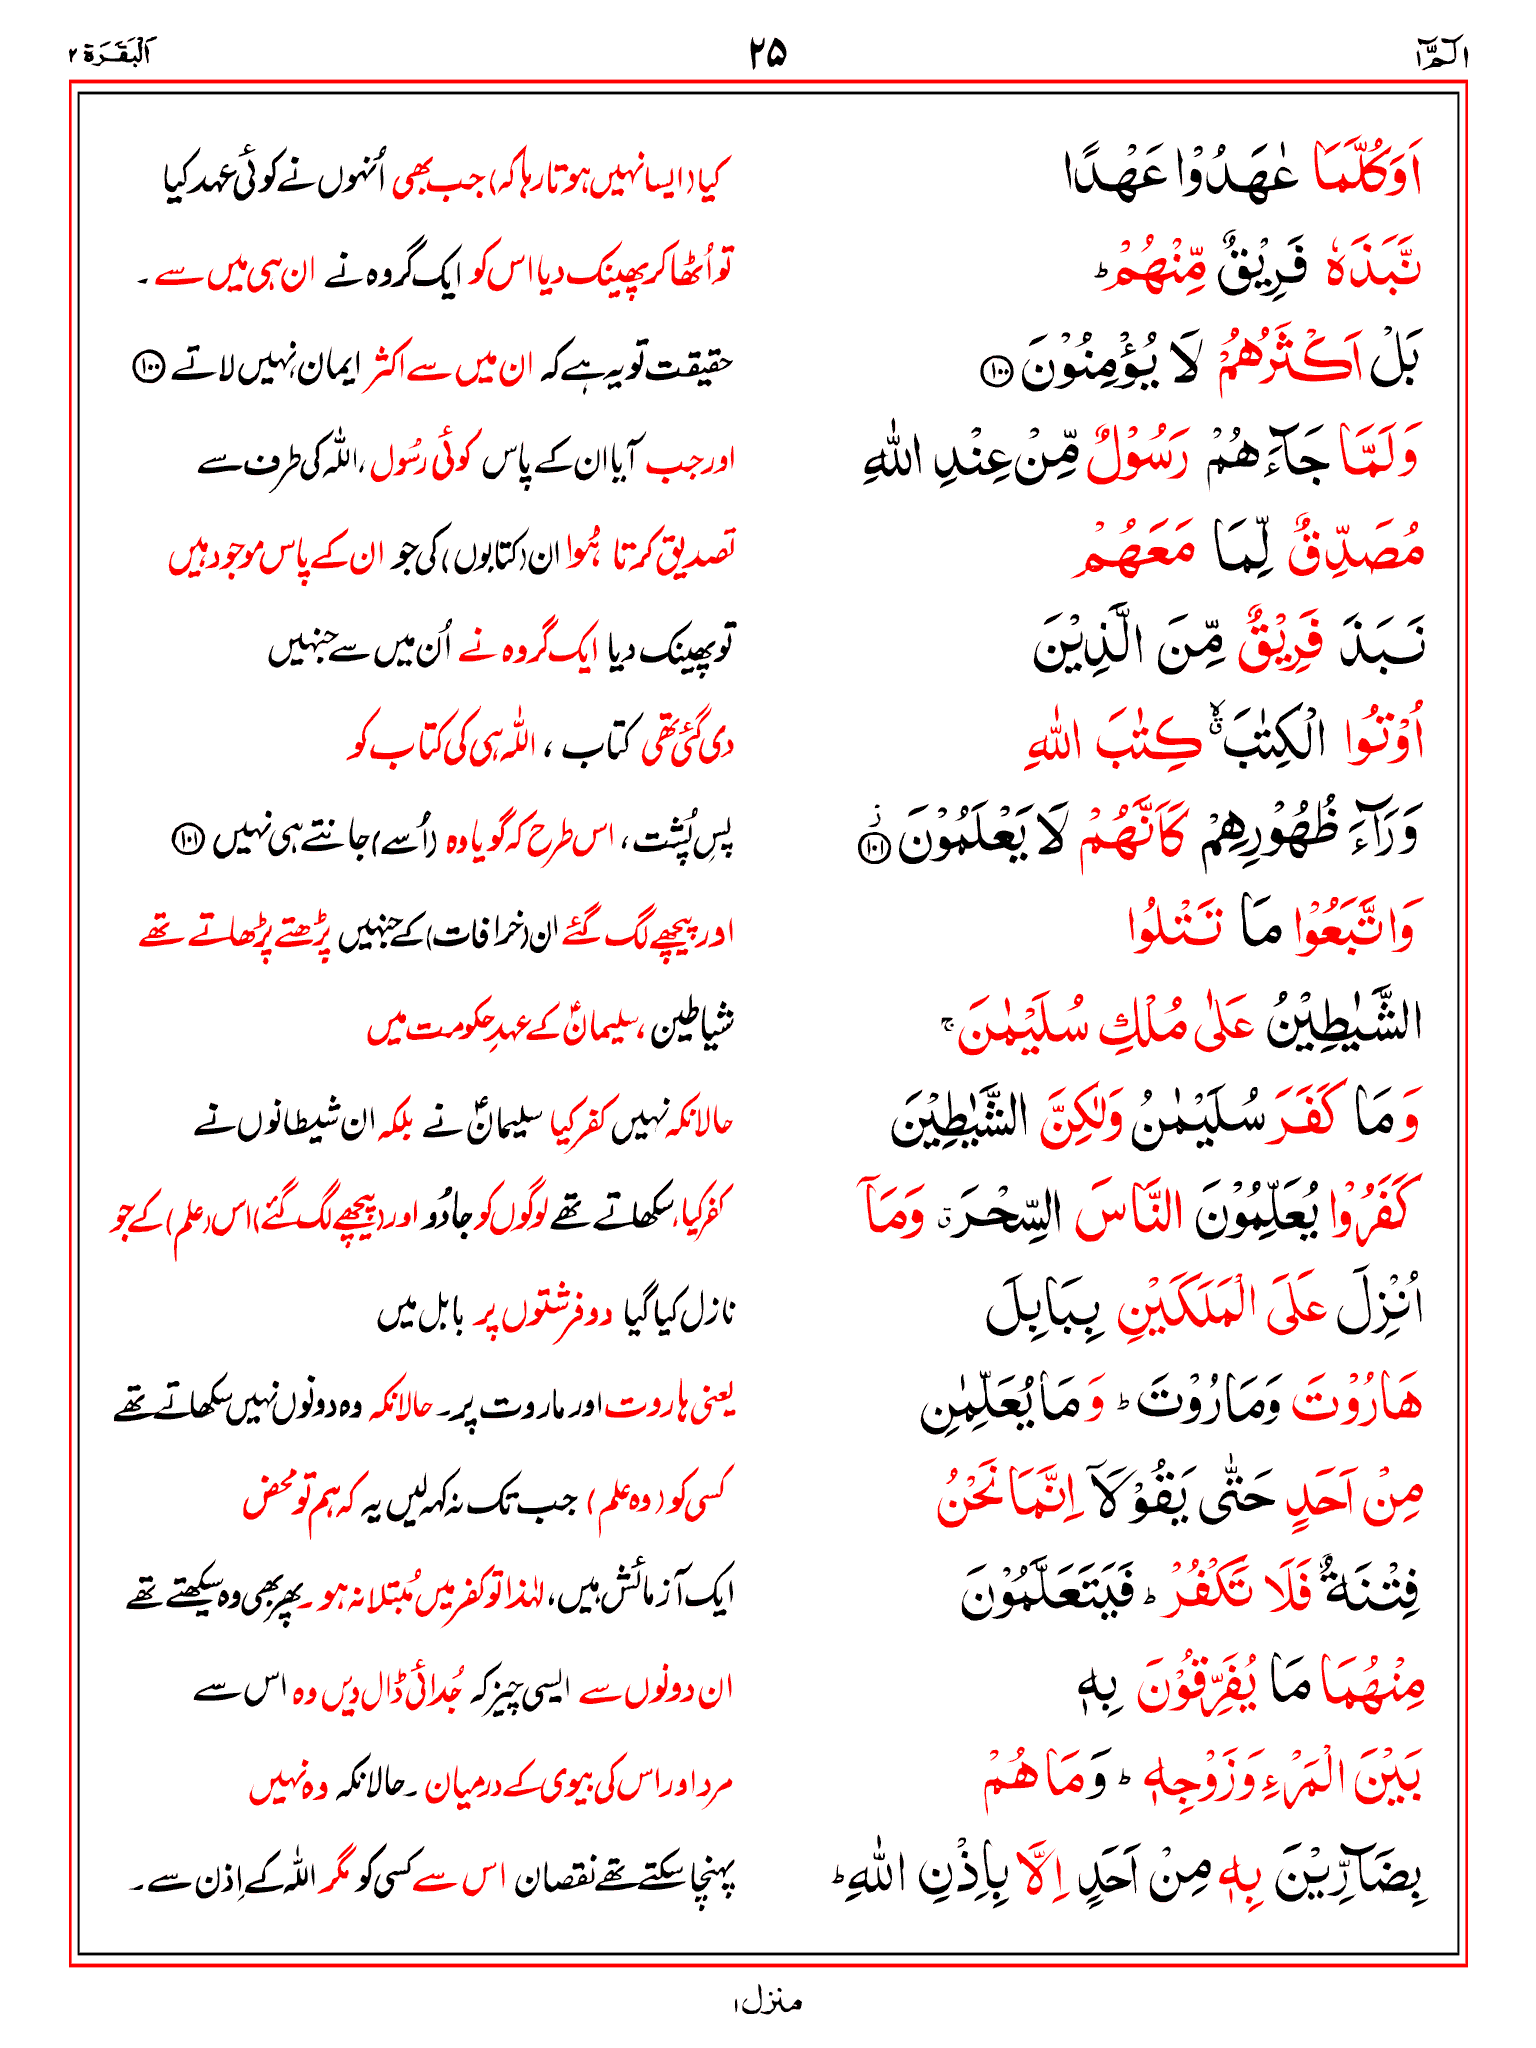 الٓمّٓ ١ ۲۵ اَلْبَقَرَة ۲
اَوَكُلَّمَا عٰهَدُوْا عَهْدًا کیا (ایسا نہیں ہوتا رہا کہ) جب بھی اُنہوں نے کوئی عہد کیا
نَّبَذَهٗ فَرِيْقٌ مِّنْهُمْ ؕ تو اُٹھا کر پھینک دیا اس کو ایک گروہ نے ان ہی میں سے ۔
بَلْ اَكْثَرُهُمْ لَا يُؤْمِنُوْنَ ۝۱۰۰ حقیقت تو یہ ہے کہ ان میں سے اکثر ایمان نہیں لاتے ۝۱۰۰
وَلَمَّا جَآءَهُمْ رَسُوْلٌ مِّنْ عِنْدِ اللّٰهِ اور جب آیا ان کے پاس کوئی رسُول ، اللہ کی طرف سے
مُصَدِّقٌ لِّمَا مَعَهُمْ تصدیق کرتا ہُوا ان (کتابوں) کی جو ان کے پاس موجود ہیں
نَبَذَ فَرِيْقٌ مِّنَ الَّذِيْنَ تو پھینک دیا ایک گروہ نے اُن میں سے جنہیں
اُوْتُوا الْكِتٰبَ ۙۗ كِتٰبَ اللّٰهِ دی گئی تھی کتاب ، اللہ ہی کی کتاب کو
وَرَآءَ ظُهُوْرِهِمْ كَاَنَّهُمْ لَا يَعْلَمُوْنَ ؗ ۝۱۰۱ پسِ پُشت ، اس طرح کہ گویا وہ (اُسے) جانتے ہی نہیں ۝۱۰۱
وَاتَّبَعُوْا مَا تَتْلُوا اور پیچھے لگ گئے ان (خرافات) کے جنہیں پڑھتے پڑھاتے تھے
الشَّيٰطِيْنُ عَلٰى مُلْكِ سُلَيْمٰنَ ۚ شیاطین ، سلیمانؑ کے عہدِ حکومت میں
وَمَا كَفَرَ سُلَيْمٰنُ وَلٰكِنَّ الشَّيٰطِيْنَ حالانکہ نہیں کفر کیا سلیمانؑ نے بلکہ ان شیطانوں نے
كَفَرُوْا يُعَلِّمُوْنَ النَّاسَ السِّحْرَ ۗ وَمَآ کفر کیا، سکھاتے تھے لوگوں کو جادُو اور (پیچھے لگ گئے) اس (علم) کے جو
اُنْزِلَ عَلَى الْمَلَكَيْنِ بِبَابِلَ نازل کیا گیا دو فرشتوں پر بابل میں
هَارُوْتَ وَمَارُوْتَ ؕ وَمَا يُعَلِّمٰنِ یعنی ہاروت اور ماروت پر۔ حالانکہ وہ دونوں نہیں سکھاتے تھے
مِنْ اَحَدٍ حَتّٰى يَقُوْلَآ اِنَّمَا نَحْنُ کسی کو (وہ علم) جب تک نہ کہہ لیں یہ کہ ہم تو محض
فِتْنَةٌ فَلَا تَكْفُرْ ؕ فَيَتَعَلَّمُوْنَ ایک آزمائش ہیں، لہٰذا تو کفر میں مُبتلا نہ ہو۔ پھر بھی وہ سیکھتے تھے
مِنْهُمَا مَا يُفَرِّقُوْنَ بِهٖ ان دونوں سے ایسی چیز کہ جُدائی ڈال دیں وہ اس سے
بَيْنَ الْمَرْءِ وَزَوْجِهٖ ؕ وَمَا هُمْ مرد اور اس کی بیوی کے درمیان ۔ حالانکہ وہ نہیں
بِضَآرِّيْنَ بِهٖ مِنْ اَحَدٍ اِلَّا بِاِذْنِ اللّٰهِ ؕ پہنچا سکتے تھے نقصان اس سے کسی کو مگر اللہ کے اِذن سے ۔
منزل ۱